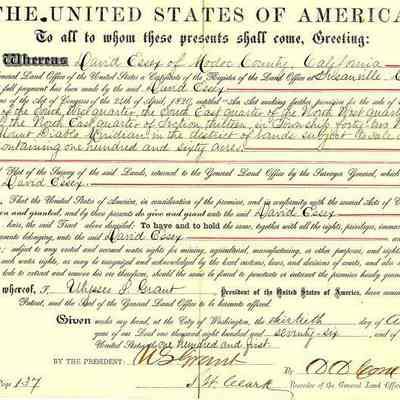 THE UNITED STATES OF AMERICA
To all to whom these presents shall come, Greeting:
Whereas David Essex of Modoc County, California
General Land Office of the United States a Certificate of the Register of the Land Office at Susanville
full payment has been made by the said David Essex
ons of the Act of Congress of the 24th of April, 1820, entitled An Act making further provision for the sale of
of the South West quarter, the South East quarter of the North West Quarter
of the North East quarter of Section thirteen, in Township forty-two
Mount Diablo Meridian in the district of lands subject to sale
containing one hundred and sixty acres.
Plat of the Survey of the said Lands, returned to the General Land Office by the Surveyor General, which
David Essex
, That the United States of America, in consideration of the premises, and in conformity with the several Acts of
en and granted, and by these presents do give and grant unto the said David Essex
heirs, the said Tract above described: To have and to hold the same, together with all the rights, privileges, immun
enances thereunto belonging, unto the said David Essex
subject to any vested and accrued water rights for mining, agricultural, manufacturing, or other purposes, and
such water rights, as may be recognized and acknowledged by the local customs, laws, and decisions of courts, and also
lode to extract and remove his ore therefrom, should the same be found to penetrate or intersect the premises hereby
whereof, I, Ulysses S. Grant President of the United States of America, have
Patent, and the Seal of the General Land Office to be hereunto affixed.
Given under my hand, at the City of Washington, the thirtieth day of
year of our Lord one thousand eight hundred and seventy-six and of
United States the one hundred and first.
BY THE PRESIDENT: U. S. Grant
By D. D. Cone
S. W. Clark
Recorder of the General Land
Page 137